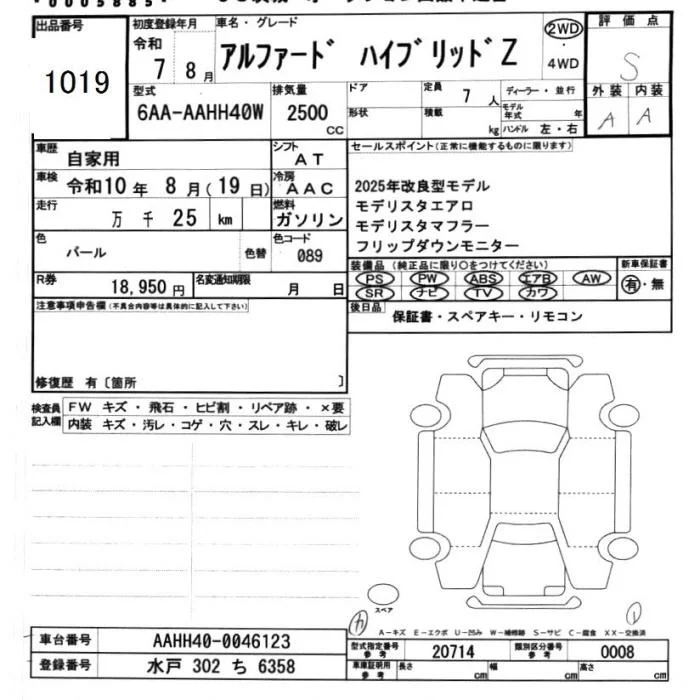 出品番号
1019
初度登録年月
令和
7 8 月
車名・グレード
アルファード ハイブリッドZ
2WD
・
4WD
評価点
S
外装 内装
A A
型式
6AA-AAHH40W
排気量
2500
CC
ドア
形状
定員
7 人
積載
kg
ディーラー・並行
モデル年式 年
ハンドル 左・右
車歴
自家用
シフト
AT
車検
令和10 年 8 月(19 日)
冷房
AAC
走行
万 千 25 km
燃料
ガソリン
色
パール
色替
色コード
089
R券
18,950 円
名変通知期限
月 日
セールスポイント(正常に機能するものに限ります)
2025年改良型モデル
モデリスタエアロ
モデリスタマフラー
フリップダウンモニター
装備品(純正品に限り○をつけてください)
PS PW ABS エアB AW
SR ナビ TV カワ
新車保証書
有・無
後日品
保証書・スペアキー・リモコン
注意事項申告欄(不具合内容等は具体的に記入して下さい)
修復歴 有〔箇所 〕
検査員
記入欄
FW キズ・飛石・ヒビ割・リペア跡・×要
内装 キズ・汚レ・コゲ・穴・スレ・キレ・破レ
スペア
A-キズ E-エクボ U-凹み W-補修跡 S-サビ C-腐食 XX-交換済
車台番号
AAHH40-0046123
登録番号
水戸 302 ち 6358
型式指定番号
参考
20714
類別区分番号
参考
0008
車庫証明用
参考
長さ cm
幅 cm
高さ cm